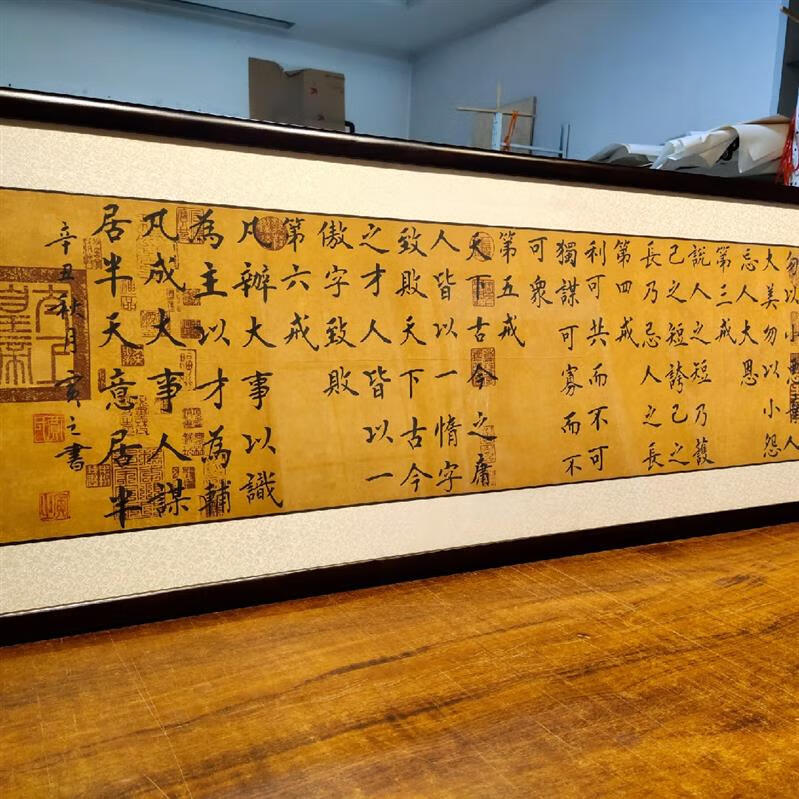 勿以小惡人
大美勿以小怨
忘人大恩
第三戒
說人之短乃護
己之短誇己之
長乃忌人之長
第四戒
利可共而不可
獨謀可寡而不
可衆
第五戒
天下古今之庸
人皆以一惰字
致敗天下古今
之才人皆以一
傲字致敗
第六戒
凡辦大事以識
為主以才為輔
凡成大事人謀
居半天意居半
辛丑秋月寅之書